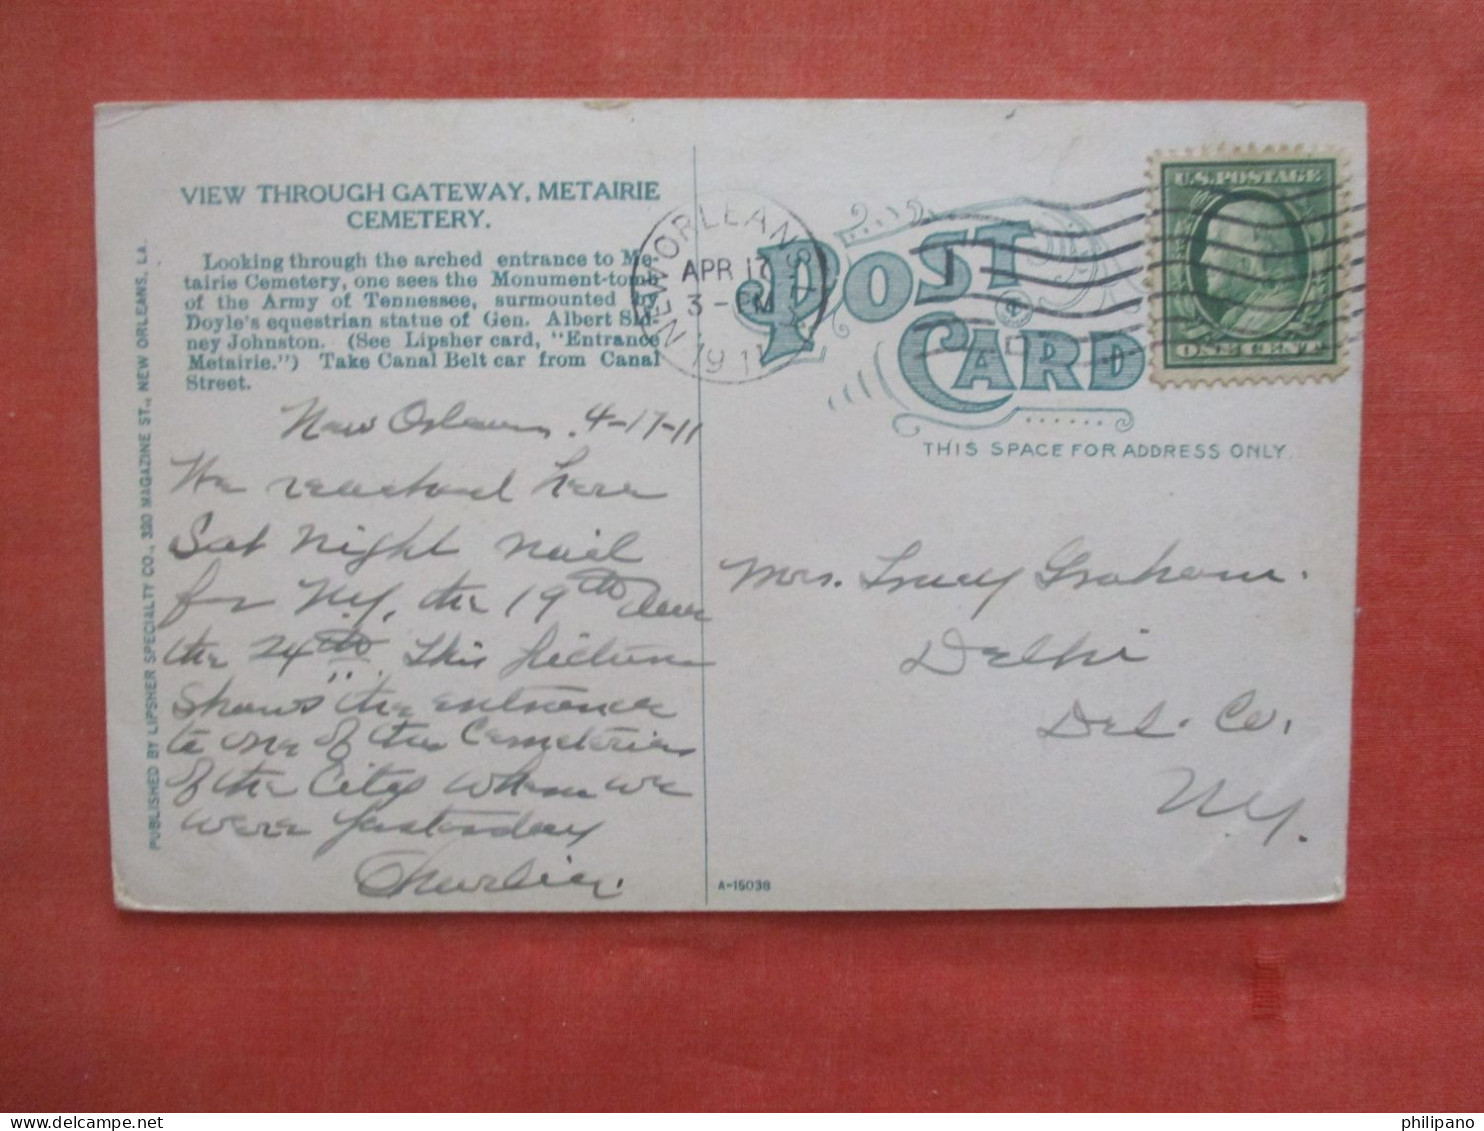 VIEW THROUGH GATEWAY, METAIRIE
CEMETERY.
Looking through the arched entrance to Me-
tairie Cemetery, one sees the Monument-tomb
of the Army of Tennessee, surmounted by
Doyle's equestrian statue of Gen. Albert Sid-
ney Johnston. (See Lipsher card, "Entrance
Metairie.") Take Canal Belt car from Canal
Street.
PUBLISHED BY LIPSHER SPECIALTY CO., 320 MAGAZINE ST., NEW ORLEANS, LA.
New Orleans, 4-17-11
We reached here
Sat night sail
for N.Y. the 19th due
the 24th. This picture
shows the entrance
to one of the Cemeteries
of the City where we
were yesterday
Charlie.
NEW ORLEANS, LA.
APR 17
3-PM
1911
POST
CARD
THIS SPACE FOR ADDRESS ONLY.
U.S. POSTAGE
ONE CENT
Mrs. Tracy Graham.
Delhi
Del. Co.
N.Y.
A-15038
philipano